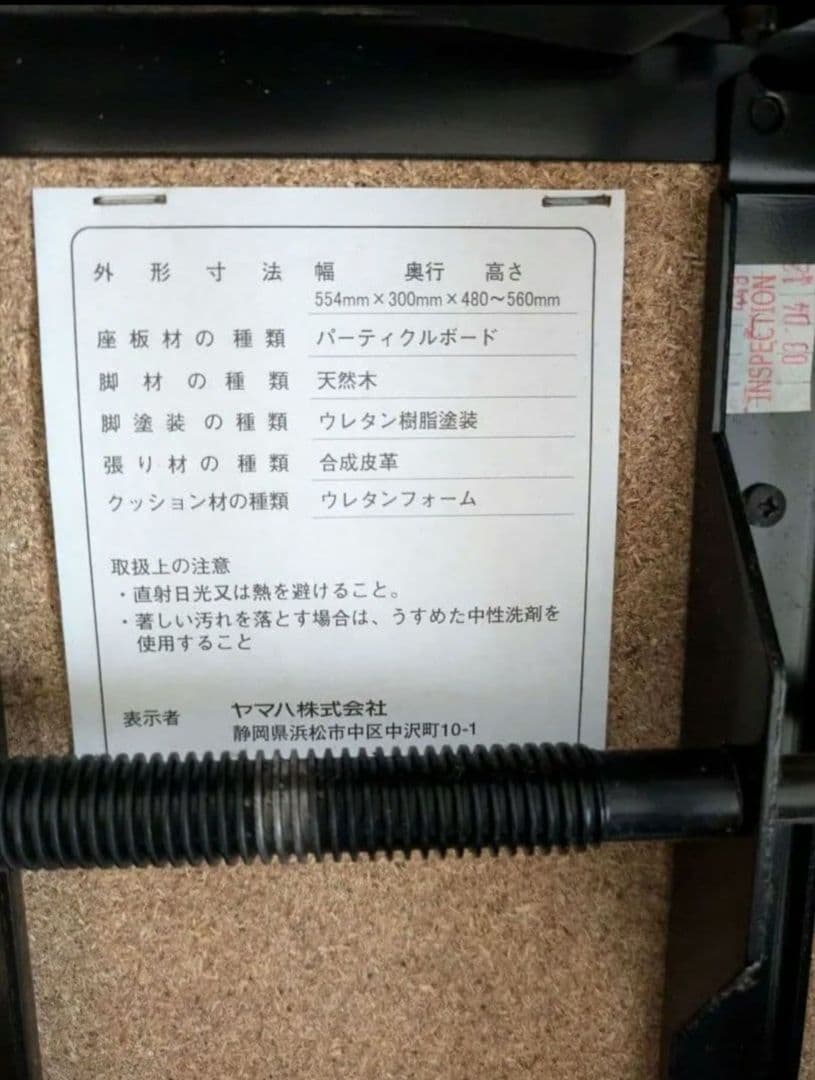 外形寸法 幅 奥行 高さ
554mm×300mm×480～560mm
座板材の種類 パーティクルボード
脚材の種類 天然木
脚塗装の種類 ウレタン樹脂塗装
張り材の種類 合成皮革
クッション材の種類 ウレタンフォーム
取扱上の注意
・直射日光又は熱を避けること。
・著しい汚れを落とす場合は、うすめた中性洗剤を
使用すること
表示者 ヤマハ株式会社
静岡県浜松市中区中沢町10-1
INSPECTION
03 04